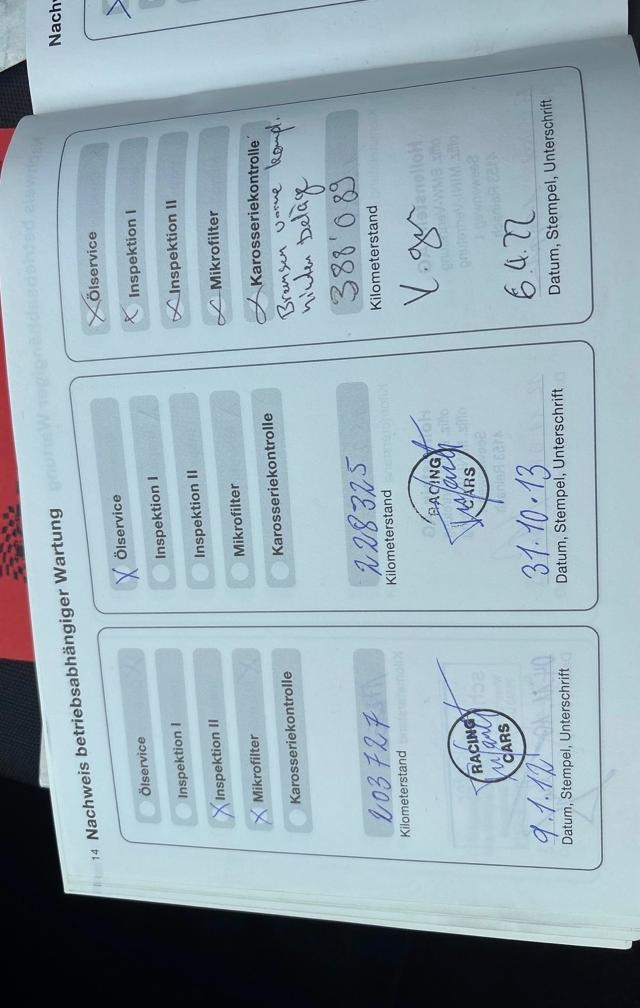 14 Nachweis betriebsabhängiger Wartung
Ölservice
Inspektion I
X Inspektion II
X Mikrofilter
Karosseriekontrolle
203727
Kilometerstand
RACING
CARS
9.1.12
Datum, Stempel, Unterschrift
X Ölservice
Inspektion I
Inspektion II
Mikrofilter
Karosseriekontrolle
228325
Kilometerstand
RACING
CARS
31.10.13
Datum, Stempel, Unterschrift
X Ölservice
X Inspektion I
X Inspektion II
X Mikrofilter
X Karosseriekontrolle
Bremsen vorne kompl.
hinten Beläge
388'089
Kilometerstand
6.4.22
Datum, Stempel, Unterschrift
Nachw